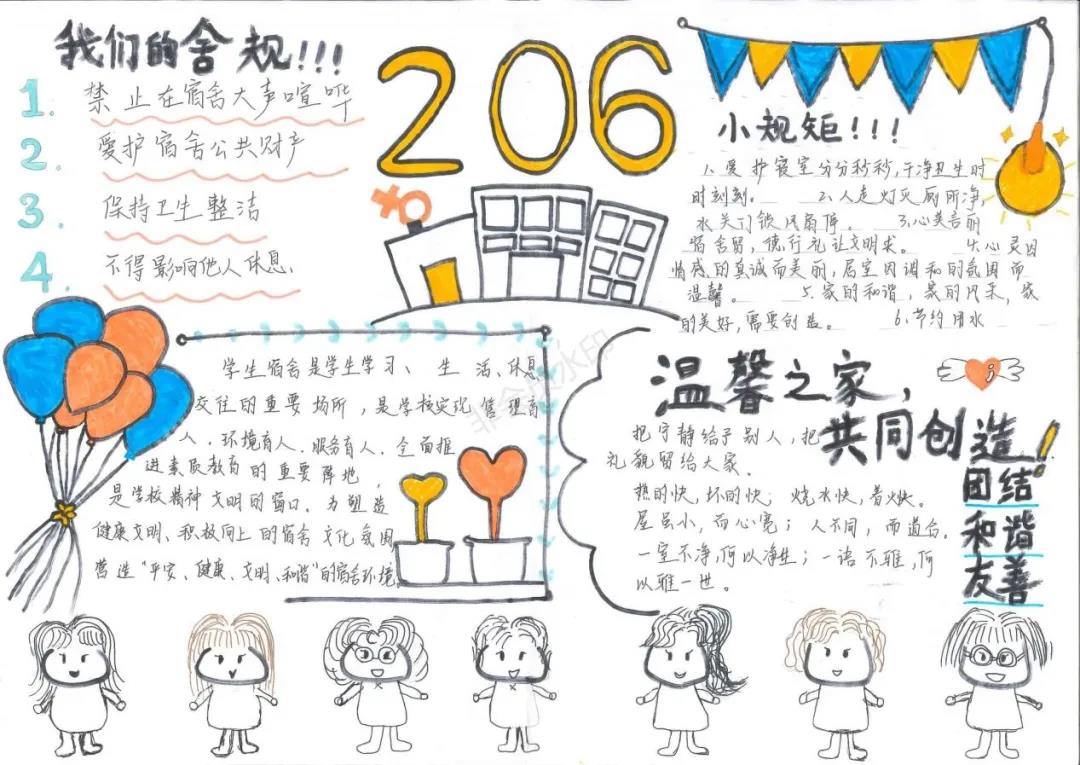 我们的舍规!!!
1. 禁止在宿舍大声喧哗
2. 爱护宿舍公共财产
3. 保持卫生整洁
4. 不得影响他人休息.
206
小规矩!!!
1. 爱护寝室分分秒秒,干净卫生时
时刻刻。 2. 人走灯灭厕所净,
水关门锁风扇停。 3. 心美言丽
宿舍留,德行礼让文明求。 4. 心灵因
情感的真诚而美丽,居室因调和的氛围而
温馨。 5. 家的和谐,家的风采,家
的美好,需要创造。 6. 节约用水
学生宿舍是学生学习、生活、休息
交往的重要场所,是学校实现管理育
人.环境育人.服务育人.全面推
进素质教育的重要阵地,
是学校精神文明的窗口.为塑造
健康文明、积极向上的宿舍文化氛围
营造“平安、健康、文明、和谐”的宿舍环境.
温馨之家,
共同创造!
把宁静给予别人,把
礼貌留给大家.
热的快,坏的快;烧水快,着火快。
屋虽小,而心宽;人不同,而道合.
一室不净,何以净世;一语不雅,何
以雅一世。
团结
和谐
友善
非会员水印